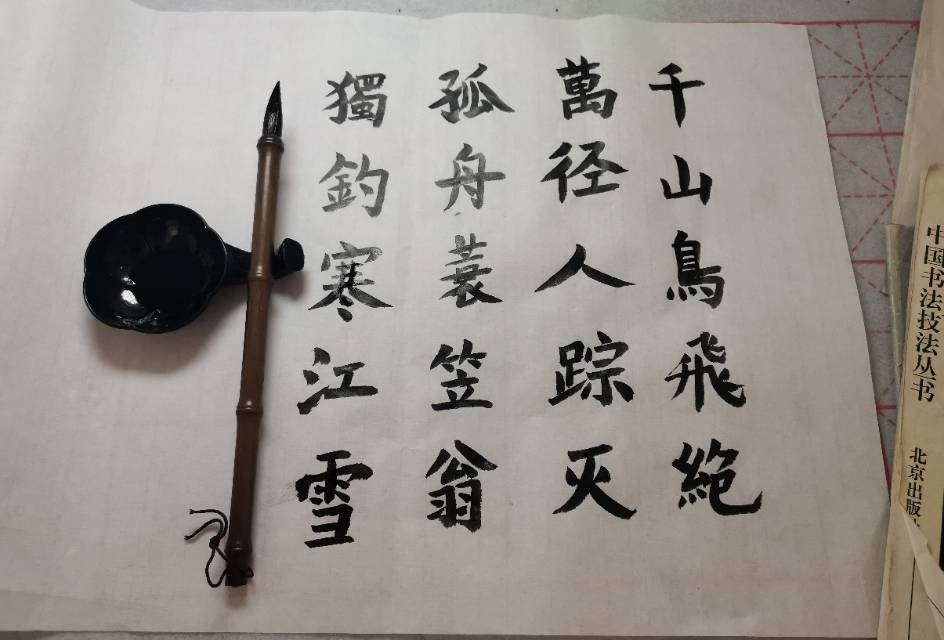 千山鳥飛絕
萬径人踪灭
孤舟蓑笠翁
獨釣寒江雪
中国书法技法丛书
北京出版